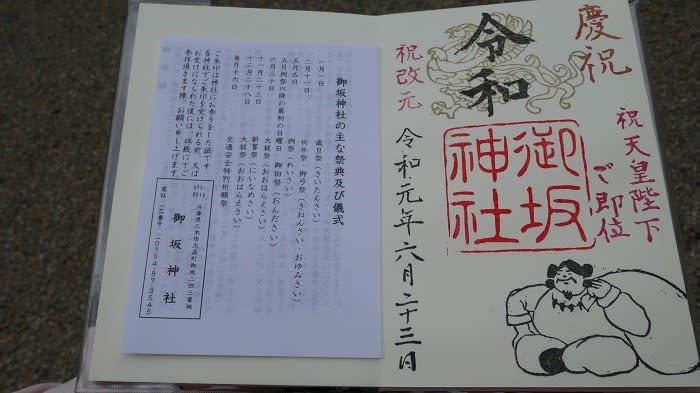 慶祝
祝天皇陛下
ご即位
令和
祝改元
御坂
神社
令和元年六月二十三日
御坂神社の主な祭典及び儀式
一月一日 歳旦祭(さいたんさい)
二月十一日 祈年祭 御弓祭(きねんさい・おゆみさい)
五月五日 例祭(れいさい)
五月例祭以降の最初の日曜日 御田祭(おんださい)
六月三十日 大祓祭(おおはらえさい)
十一月二十三日 新嘗祭(にいなめさい)
十二月二十八日 大祓祭(おおはらえさい)
毎月十六日 交通安全特別祈願祭
ご朱印は神社にお参りをした証です
各神社でご朱印を受けられる前、又は
お受けになられた後には、拝殿にてご
参拝頂きます様、お願い申し上げます。
兵庫県三木市志染町御坂二四三番地
御坂神社
電話・二二番号(0794-87-3545